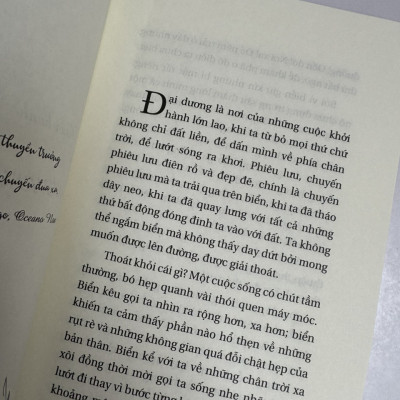 thuyền trưởng
chuyến đua xa
Oceano No
Đại dương là nơi của những cuộc khởi
hành lớn lao, khi ta từ bỏ mọi thứ chứ
không chỉ đất liền, để dấn mình về phía chân
trời, để lướt sóng ra khơi. Phiêu lưu, chuyến
phiêu lưu điên rồ và đẹp đẽ, chính là chuyến
phiêu lưu mà ta trải qua trên biển, khi ta đã tháo
dây neo, khi ta đã quay lưng với tất cả những
thứ bất động đóng đinh ta vào với đất. Ta không
thể ngắm biển mà không thấy day dứt bởi mong
muốn được lên đường, được giải thoát.
Thoát khỏi cái gì? Một cuộc sống có chút tầm
thường, bó hẹp quanh vài thói quen máy móc.
Biển kêu gọi ta nhìn ra rộng hơn, xa hơn; biển
khiến ta cảm thấy phần nào hổ thẹn về những
rụt rè và những không gian quá đỗi chật hẹp của
bản thân. Biển kể với ta về những chân trời xa
xôi đồng thời mời gọi ta sống nhẹ
lướt đi thay vì bước từng
khoảng